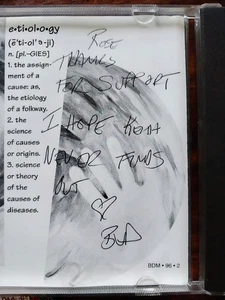 e•ti•ol•o•gy
(ē'ti-ol'ə-ji)
n. [pl.-GIES]
1. the assign-
ment of a
cause: as,
the etiology
of a folkway.
2. the
science
of causes
or origins.
3. science
or theory
of the
causes of
diseases.
ROSE
THANKS
FOR SUPPORT
I HOPE KEITH
NEVER FINDS
OUT
♡
BDM • 96 • 2